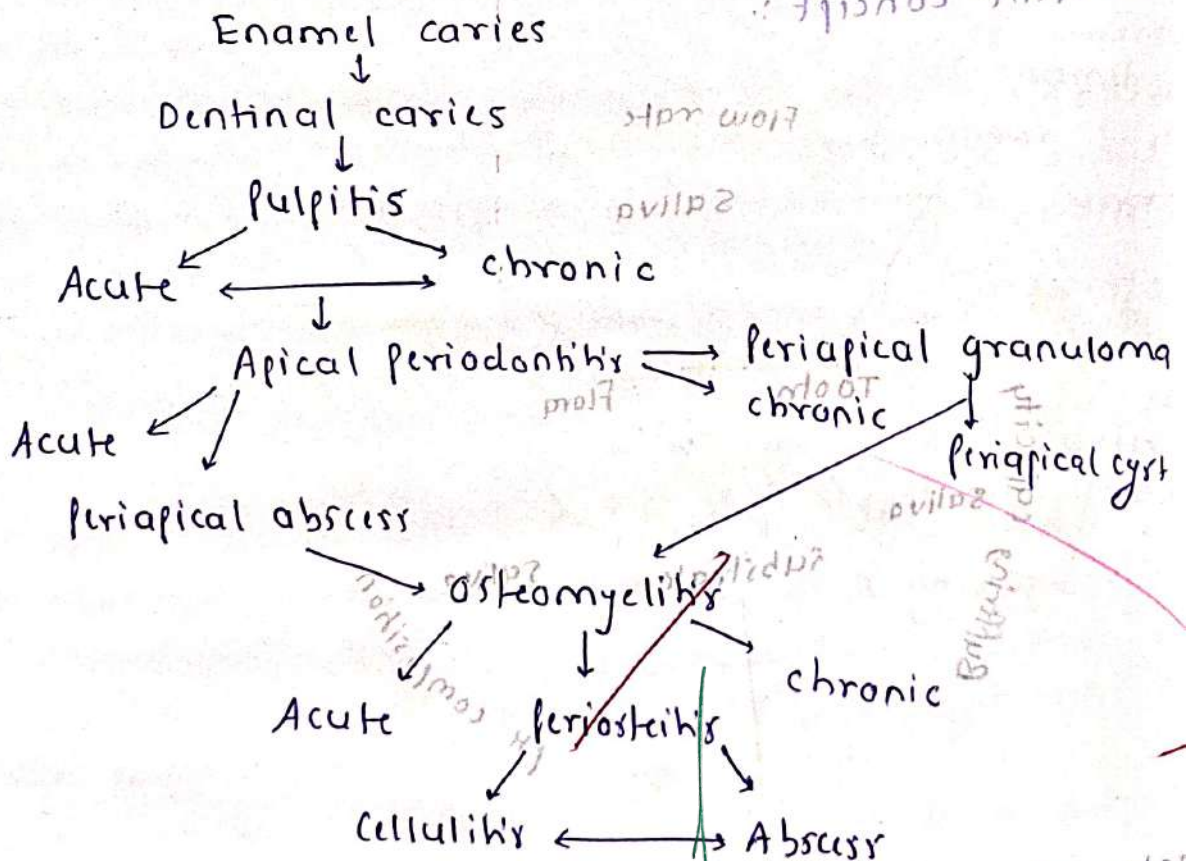 Enamel caries
Dentinal caries
Pulpitis
Acute chronic
Apical periodontitis Periapical granuloma
chronic
Acute Periapical cyst
Periapical abscess
Osteomyelitis
chronic
Acute Periosteitis
Cellulitis Abscess